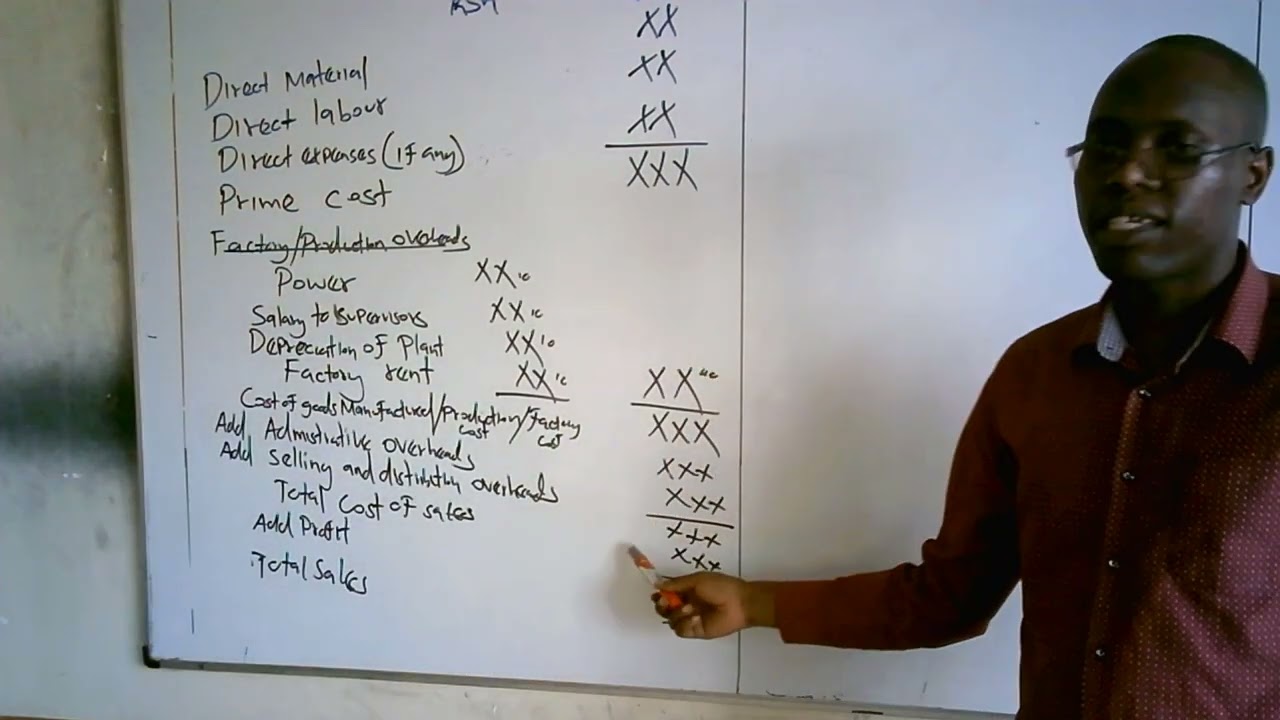 KSH
XX
Direct Material XX
Direct labour XX
Direct expenses (if any)
Prime cost XXX
Factory/Production overheads
Power XX
Salary to supervisors XX
Depreciation of Plant XX
Factory rent XX XX
Cost of goods Manufactured/Production cost/Factory cost XXX
Add Admistrative overheads XXX
Add Selling and distribution overheads XXX
Total Cost of sales XXX
Add Profit XXX
Total Sales